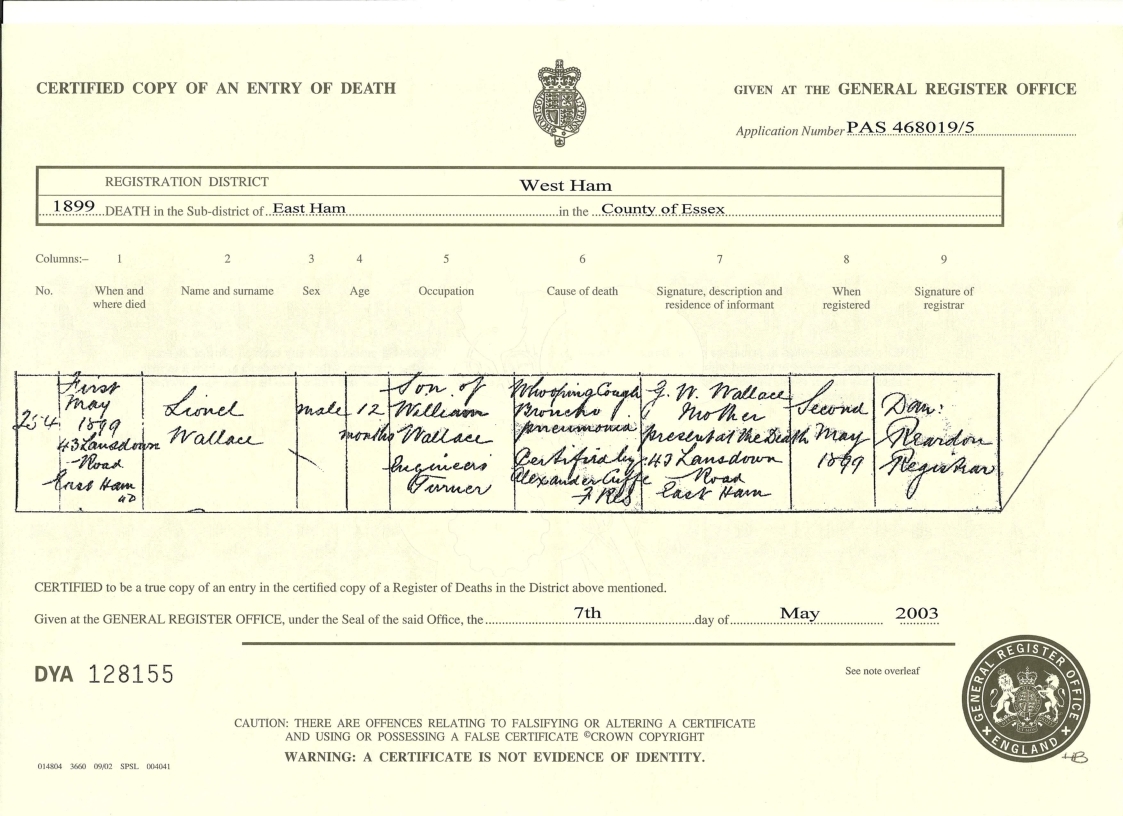 CERTIFIED COPY OF AN ENTRY OF DEATH
GIVEN AT THE GENERAL REGISTER OFFICE
Application Number PAS 468019/5
REGISTRATION DISTRICT West Ham
1899 DEATH in the Sub-district of East Ham in the County of Essex
Columns:– 1 2 3 4 5 6 7 8 9
No.
When and
where died
Name and surname
Sex
Age
Occupation
Cause of death
Signature, description and
residence of informant
When
registered
Signature of
registrar
254
First
May
1899
43 Lansdown
Road
East Ham
UD
Lionel
Wallace
male
12
months
Son of
William
Wallace
Engineers
Turner
Whooping Cough
Broncho
pneumonia
Certified by
Alexander Cuffe
FRCS
G. W. Wallace
Mother
present at the Death
43 Lansdown
Road
East Ham
Second
May
1899
Dan:
Reardon
Registrar
CERTIFIED to be a true copy of an entry in the certified copy of a Register of Deaths in the District above mentioned.
Given at the GENERAL REGISTER OFFICE, under the Seal of the said Office, the 7th day of May 2003
DYA 128155
See note overleaf
GENERAL REGISTER OFFICE
ENGLAND
CAUTION: THERE ARE OFFENCES RELATING TO FALSIFYING OR ALTERING A CERTIFICATE
AND USING OR POSSESSING A FALSE CERTIFICATE ©CROWN COPYRIGHT
WARNING: A CERTIFICATE IS NOT EVIDENCE OF IDENTITY.
014804 3660 09/02 SPSL 004041